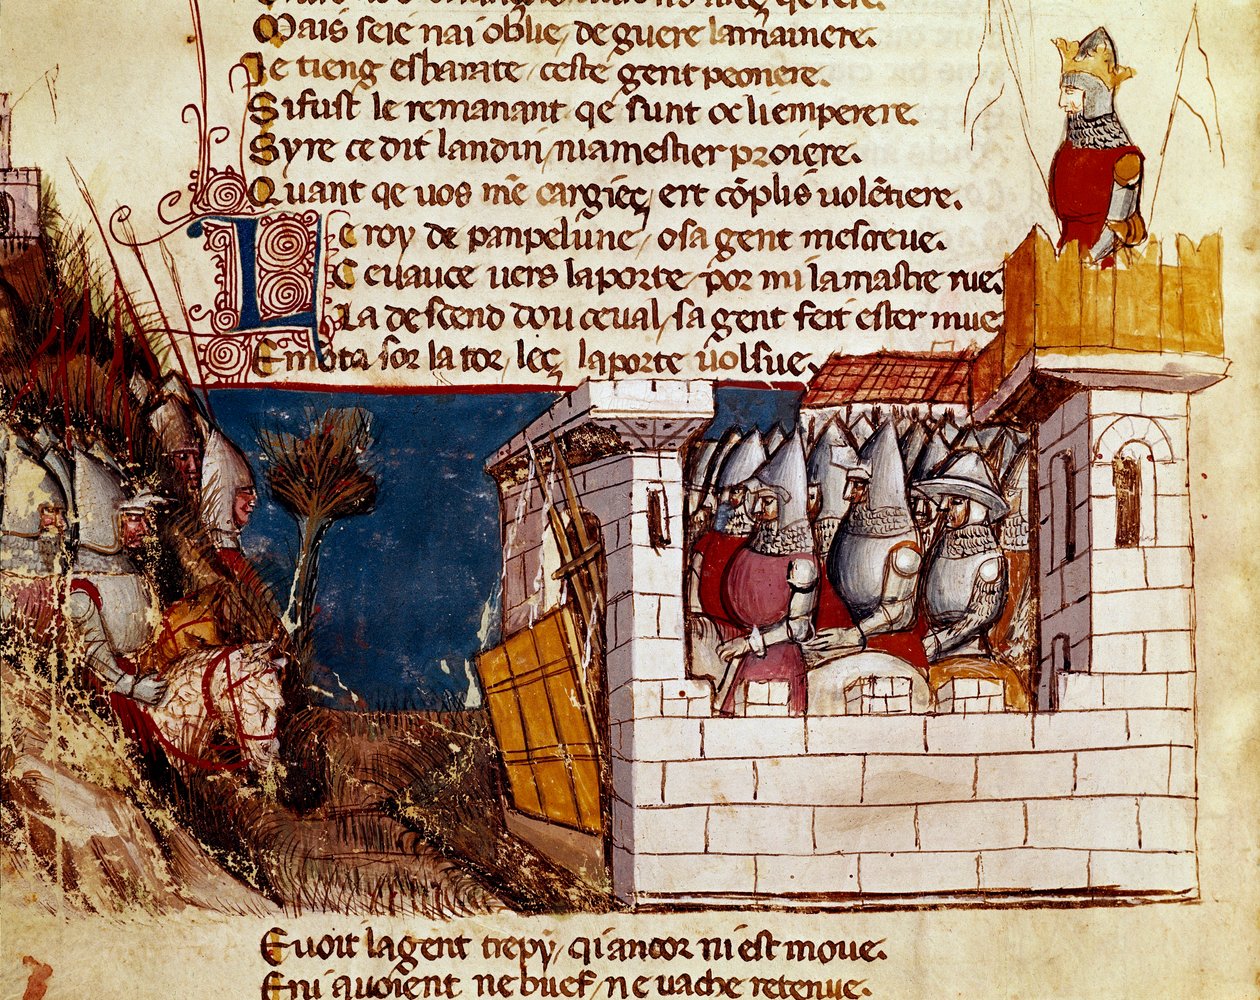 Mais seie nai oblie, de guere lamainere.
Je tieng esbarate ceste gent peonere.
Si fust le remanant qe sunt oc liemperere.
Syre ce dit landin, niamestier proiere.
Quant qe uos me cargies, ert cõplis uolẽtiere.
Le roy de panpelune, osa gent mescreue.
Ceuauce uers laporte, por mi lamastre rue.
La descend dou ceual, sa gent feit ester mue
E mõta sor la tor, leç laporte uolsue.
E uoit lagent trepy, qi ancor ni est moue.
En i auoient ne buef, ne uache retenue.